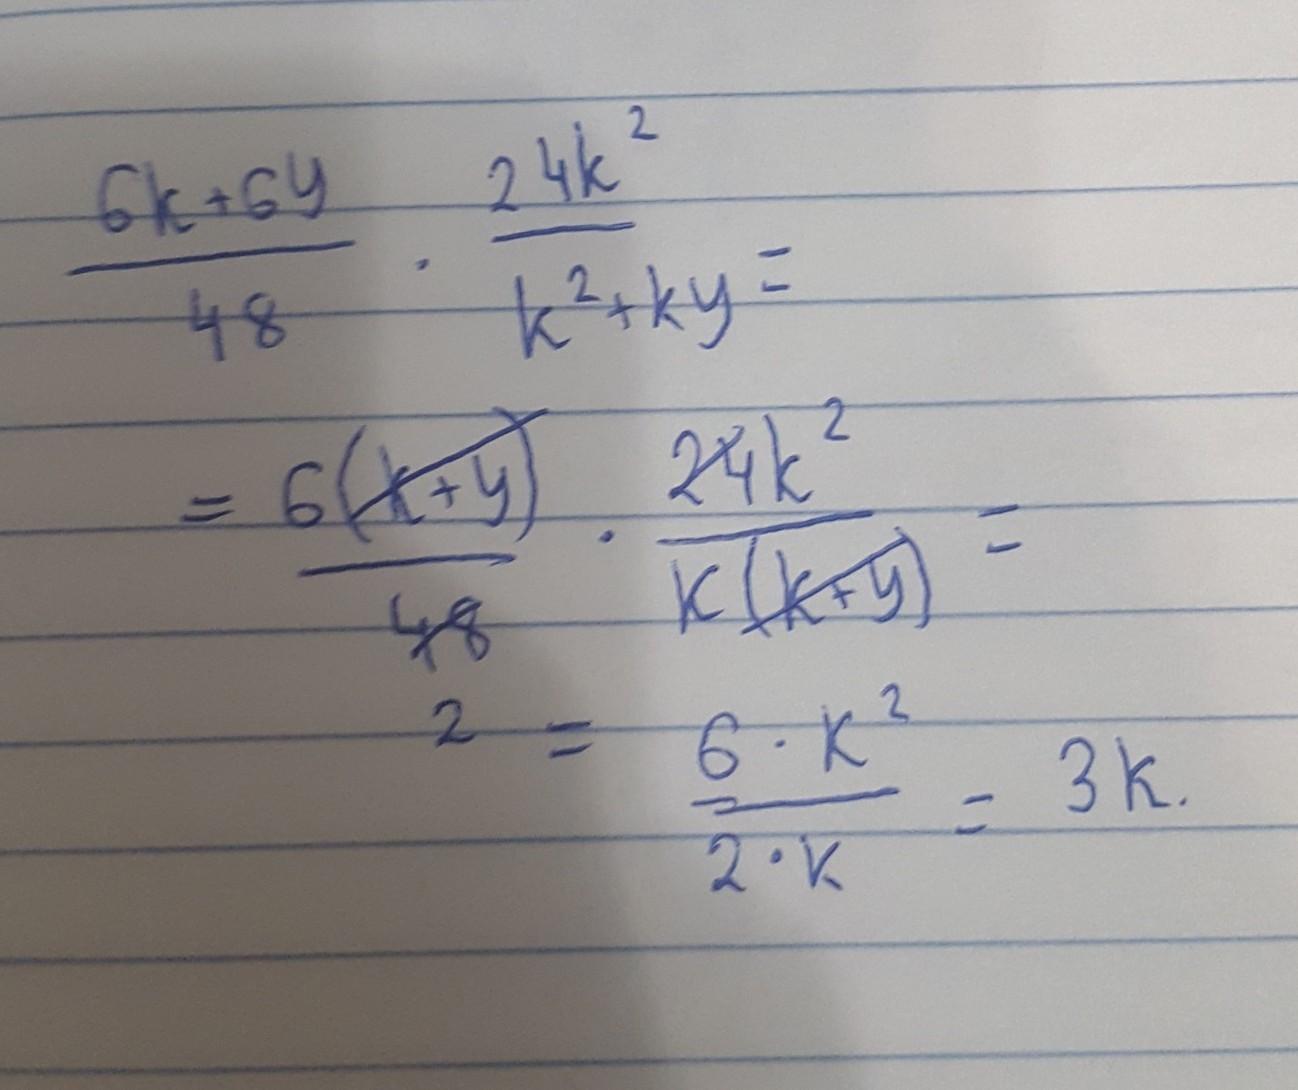 6k+6y/48 · 24k²/k²+ky =
= 6(k+y)/48 · 24k²/k(k+y) =
2
= 6·k²/2·k = 3k.